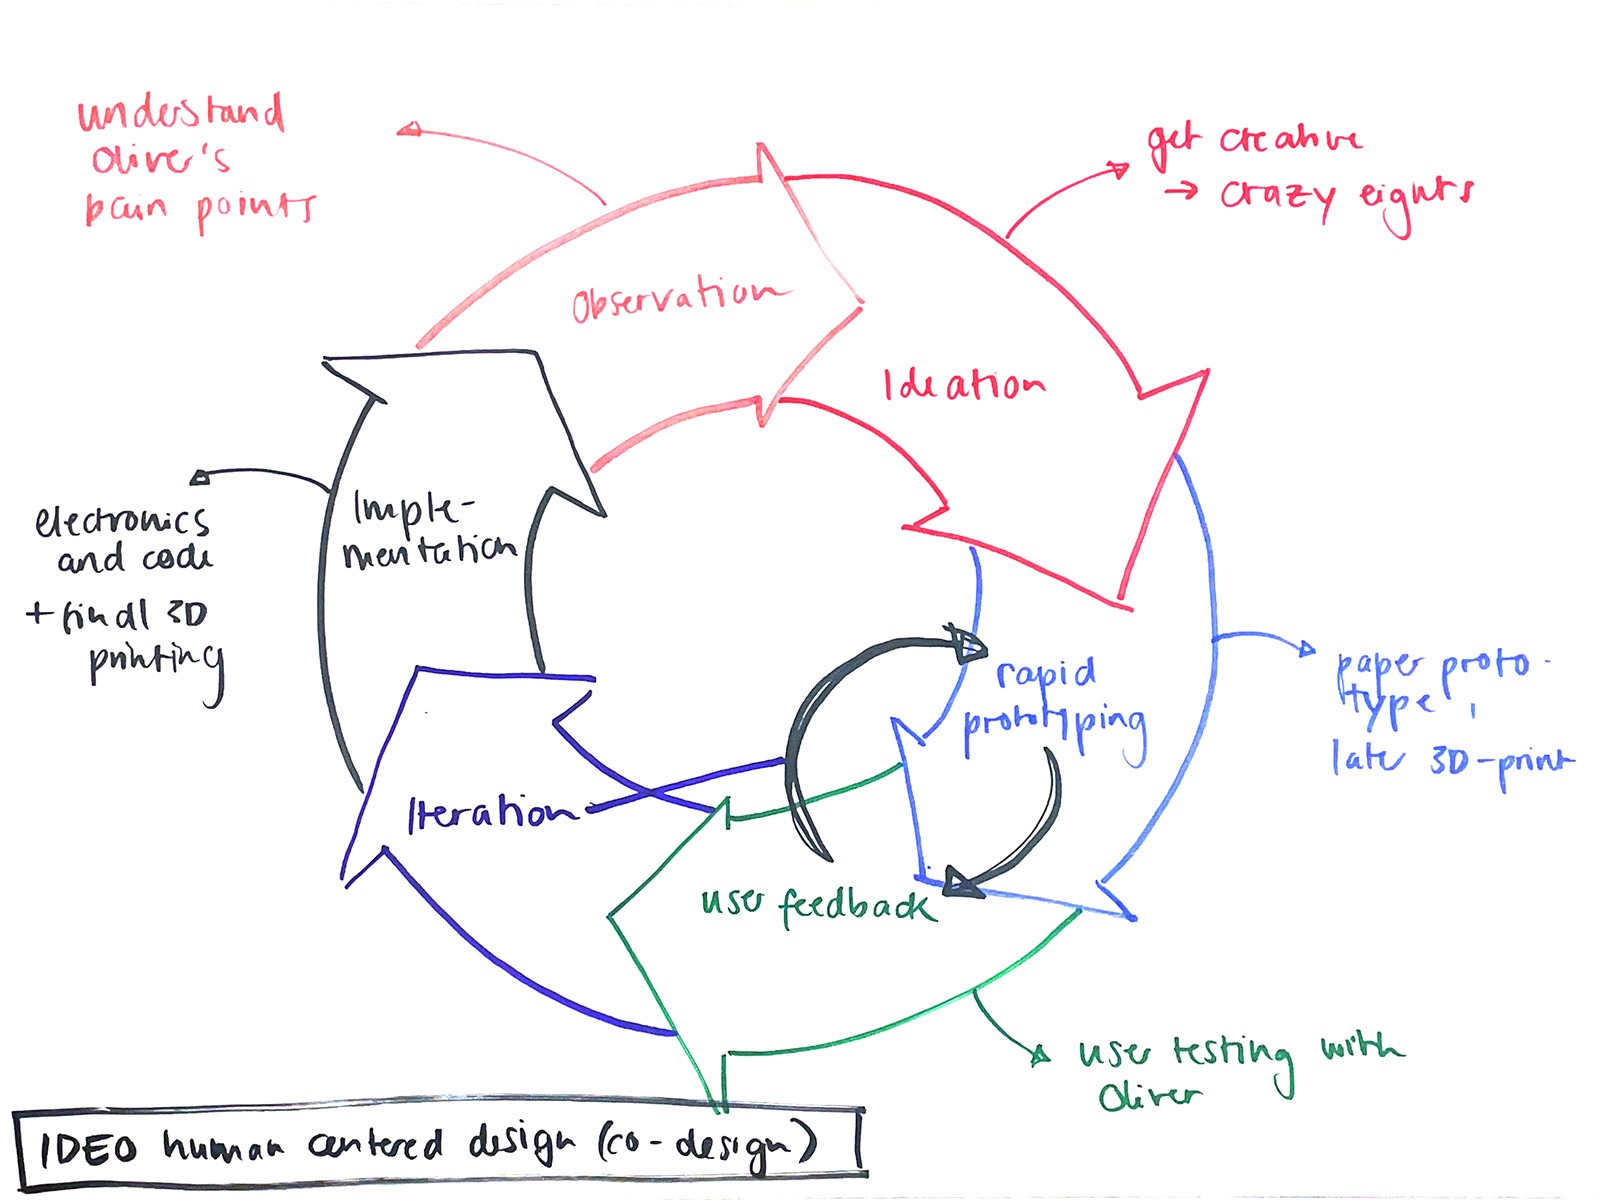 understand
Oliver's
pain points
get creative
→ crazy eights
Observation
Ideation
Imple-
mentation
electronics
and code
+ final 3D
printing
rapid
prototyping
paper proto-
type,
late 3D-print
Iteration
user feedback
user testing with
Oliver
IDEO human centered design (co-design)